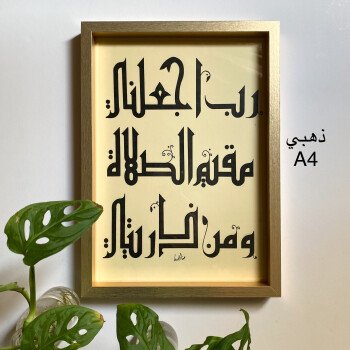 رب اجعلني
مقيم الصلاة
ومن ذريتي
ذهبي
A4